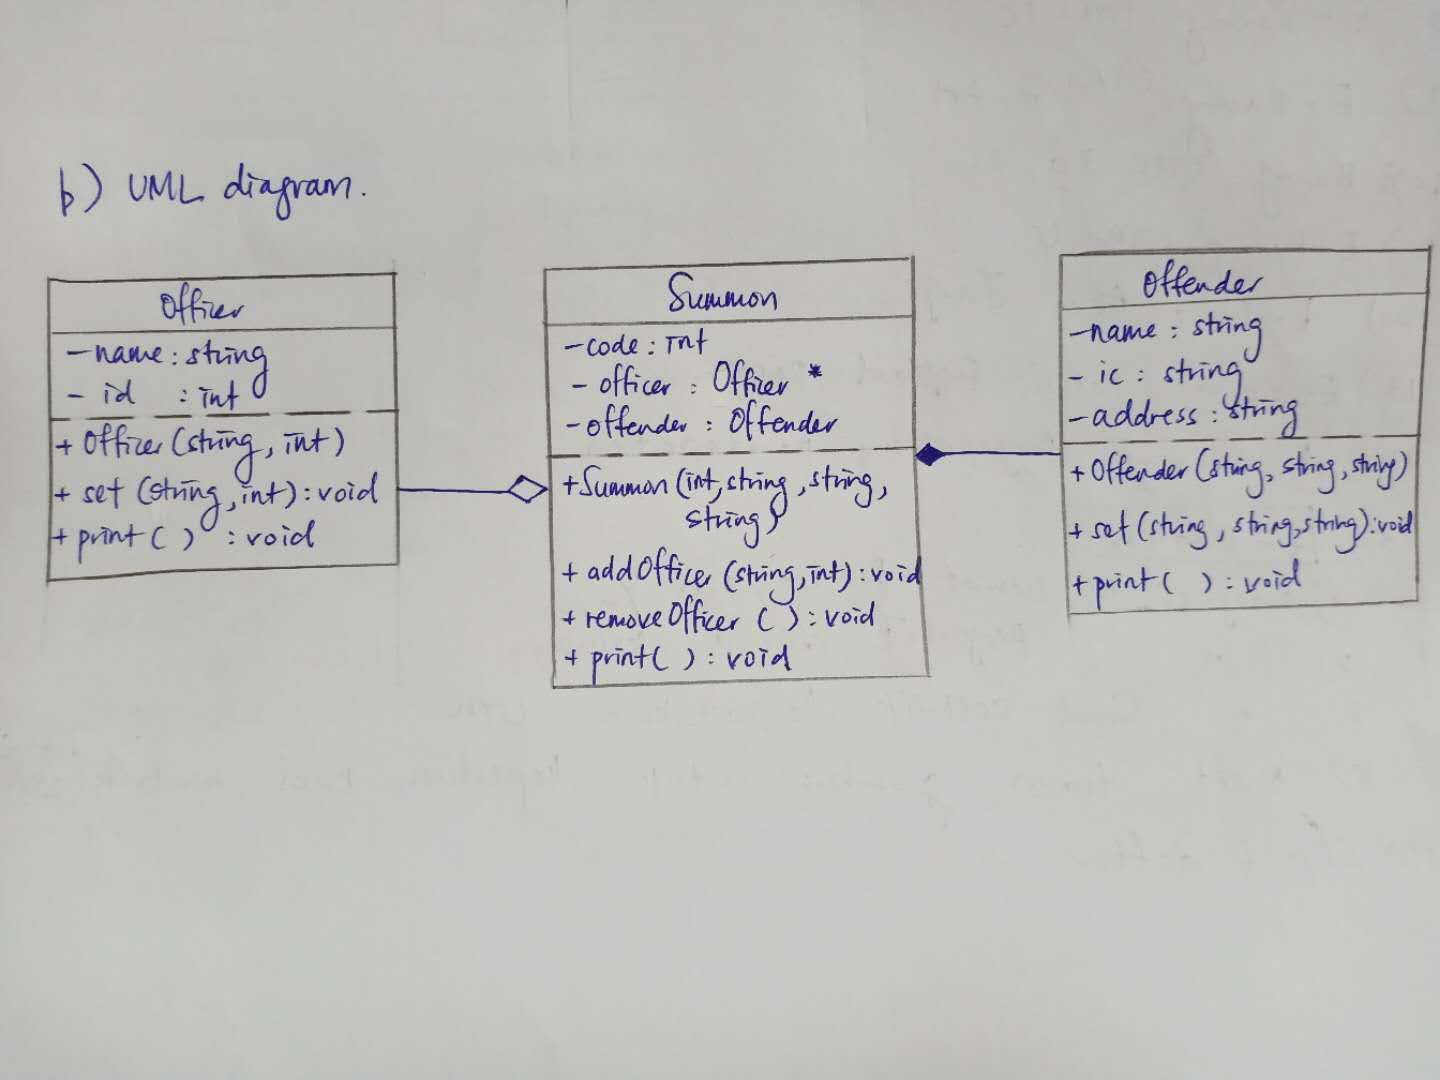 b) UML diagram.
Officer
- name : string
- id : int
+ Officer (string, int)
+ set (string, int) : void
+ print ( ) : void
Summon
- code : int
- officer : Officer *
- offender : Offender
+ Summon (int, string, string,
string)
+ addOfficer (string, int) : void
+ removeOfficer ( ) : void
+ print ( ) : void
Offender
- name : string
- ic : string
- address : string
+ Offender (string, string, string)
+ set (string, string, string) : void
+ print ( ) : void